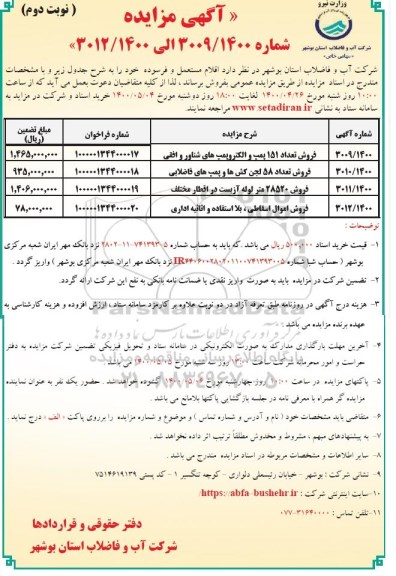 وزارت نیرو
شرکت آب و فاضلاب استان بوشهر
(سهامی خاص)
« آگهی مزایده
( نوبت دوم)
شماره ۳۰۰۹/۱۴۰۰ الی ۳۰۱۲/۱۴۰۰»
شرکت آب و فاضلاب استان بوشهر در نظر دارد اقلام مستعمل و فرسوده خود را به شرح جدول زیر و با مشخصات
مندرج در اسناد مزایده از طریق مزایده عمومی بفروش برساند ، لذا از کلیه متقاضیان دعوت بعمل می آید که از ساعت
۱۰:۰۰ روز شنبه مورخ ۱۴۰۰/۰۴/۲۶ لغایت ۱۸:۰۰ روز دوشنبه مورخ ۱۴۰۰/۰۵/۰۴ خرید اسناد و شرکت در مزایده به
سامانه ستاد به نشانی www.setadiran.ir مراجعه نمایند.
شماره آگهی شرح مزایده شماره فراخوان مبلغ تضمین (ریال)
۳۰۰۹/۱۴۰۰ فروش تعداد ۱۵۱ پمپ و الکتروپمپ های شناور و افقی ۱۰۰۰۰۰۱۳۴۴۰۰۰۰۱۷ ۱,۴۶۵,۰۰۰,۰۰۰
۳۰۱۰/۱۴۰۰ فروش تعداد ۵۸ لجن کش ها و پمپ های فاضلابی ۱۰۰۰۰۰۱۳۴۴۰۰۰۰۱۸ ۹۳۵,۰۰۰,۰۰۰
۳۰۱۱/۱۴۰۰ فروش ۲۸۵۲۰ متر لوله آزبست در اقطار مختلف ۱۰۰۰۰۰۱۳۴۴۰۰۰۰۱۹ ۱,۴۰۶,۰۰۰,۰۰۰
۳۰۱۲/۱۴۰۰ فروش اموال اسقاطی ، بلا استفاده و اثاثیه اداری ۱۰۰۰۰۰۱۳۴۴۰۰۰۰۲۰ ۷۸,۰۰۰,۰۰۰
توضیحات :
۱- قیمت خرید اسناد ۵۰۰,۰۰۰ ریال می باشد. که باید به حساب شماره ۷۴۱۳۹۳۰۵-۱۱-۲۸۰۲ نزد بانک مهر ایران شعبه مرکزی
بوشهر ( حساب شبا شماره نزد بانک مهر ایران شعبه مرکزی بوشهر ) واریز گردد .
۲- تضمین شرکت در مزایده باید به صورت واریز نقدی یا ضمانت نامه بانکی به نفع این شرکت ارائه گردد.
۳- هزینه درج آگهی در روزنامه طبق تعرفه آزاد در دو نوبت علاوه بر کارمزد سامانه ستاد ، ارزش افزوده و هزینه کارشناسی به
عهده برنده مزایده می باشد .
۴- آخرین مهلت بارگذاری مدارک به صورت الکترونیکی در سامانه ستاد و تحویل فیزیکی تضمین شرکت مزایده به دفتر
حراست و امور محرمانه شرکت ساعت
۵- پاکتهای مزایده در ساعت ۱۰:۰۰ روز چهارشنبه مورخ گشوده خواهد شد. حضور یک نفر به عنوان نماینده
مزایده گر همراه با معرفی نامه در جلسه بازگشایی پاکتها بلامانع می باشد .
۶- متقاضی باید مشخصات خود ( نام و آدرس و شماره تماس ) و موضوع و شماره مزایده را بر روی پاکت ( الف ) درج نماید .
۷- به پیشنهادهای مبهم ، مشروط و مخدوش مطلقاً ترتیب اثر داده نخواهد شد .
۸- سایر اطلاعات و مشخصات مربوطه در اسناد مزایده مندرج می باشد .
۹- نشانی شرکت : بوشهر - خیابان رئیسعلی دلواری - کوچه تنگسیر ۱ - کد پستی ۷۵۱۴۶۱۹۱۳۹
۱۰- سایت اینترنتی شرکت : https://abfa-bushehr.ir/
۱۱- تلفن تماس : ۰۷۷-۳۱۶۴۰۰۰۰
دفتر حقوقی و قراردادها
شرکت آب و فاضلاب استان بوشهر